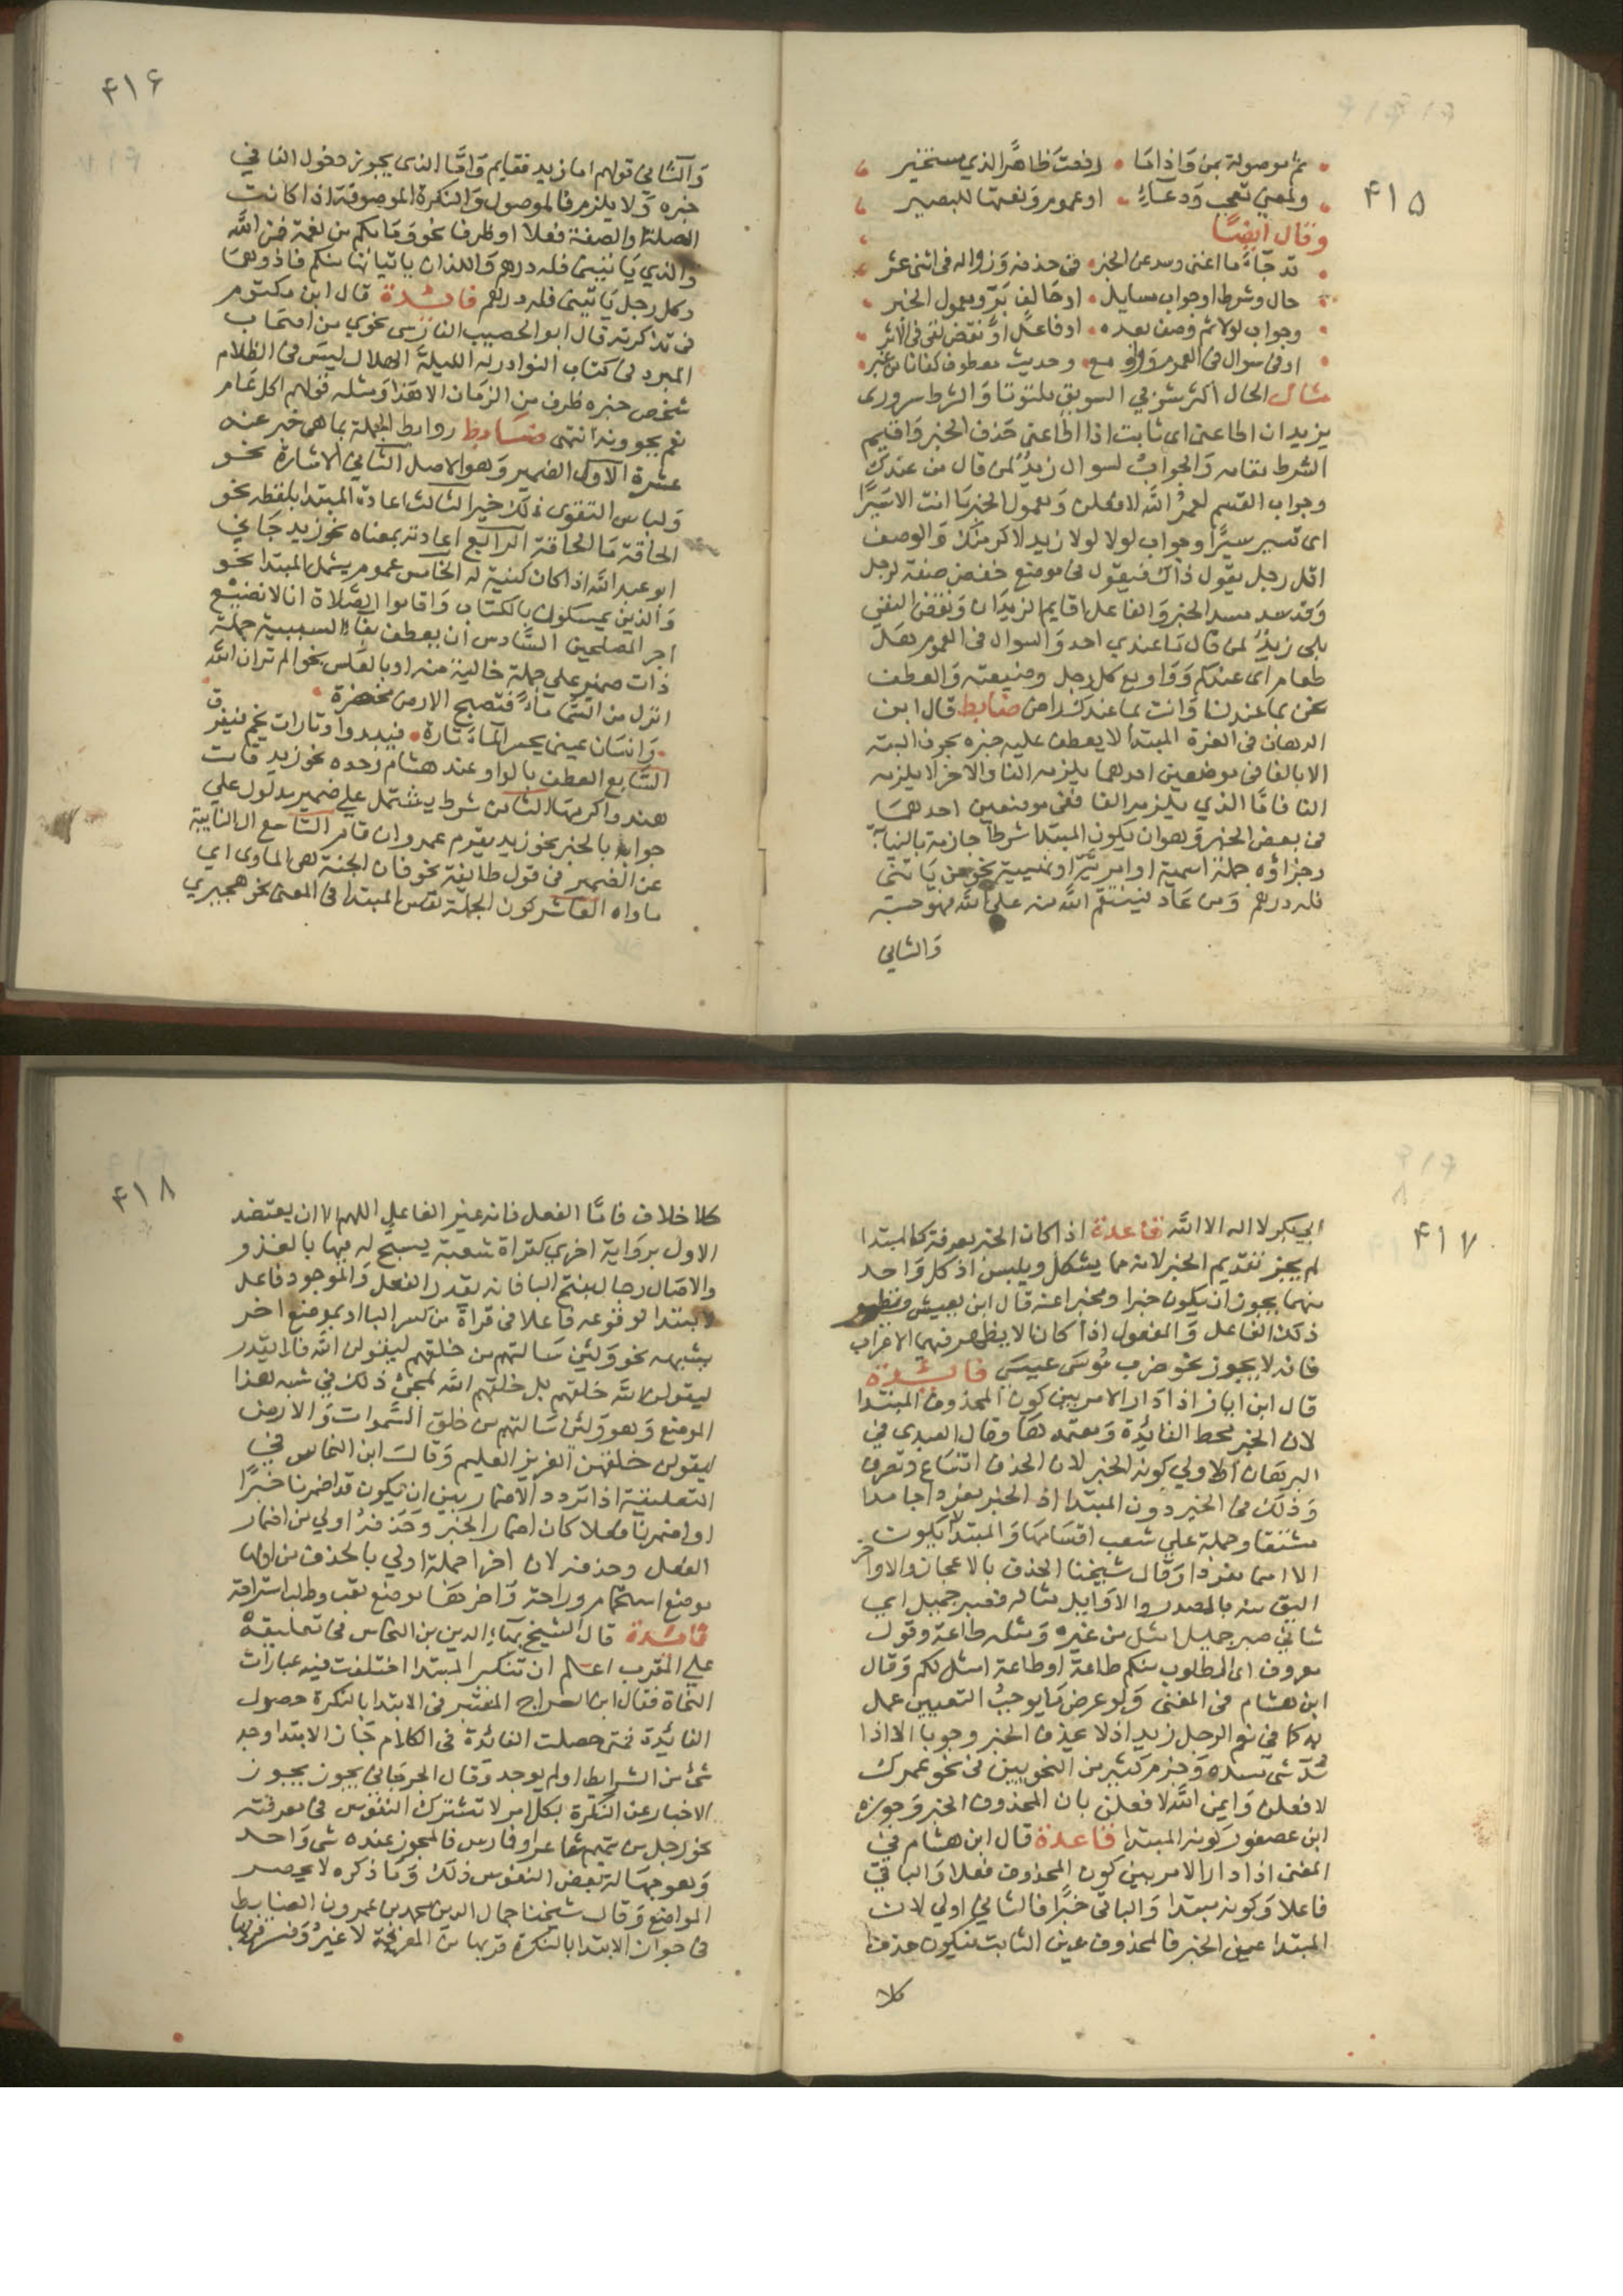 ٤١٥
ثم موصولة بمن واذا ما رفعت ظاهرا لذي مستخير
ولمعنى تعجب ودعاء او عموم ونعتها للبصير
وقال ايضا
قد جاء ما اغنى وسد عن الخبر في حذفه وزواله في اثنى عشر
حال وشرط او جواب مسايل او حالف بر ومعمول الخبر
وجواب لولا ثم وصف بعده او فاعل او نقض نفي في الاثر
او في سوال في العموم وواو مع وحديث معطوف كفانا من غبر
مثال الحال اكثر شربي السويق ملتوتا والشرط سروري
بزيد ان اطاعنى اى ثابت اذا اطاعنى حذف الخبر واقيم
الشرط مقامه والجواب لسوال زيد لمن قال من عندك
وجواب القسم لعمر الله لافعلن ومعمول الخبر ما انت الا سيرا
اى تسير سيرا وجواب لولا لولا زيد لاكرمتك والوصف
اقل رجل يقول ذاك فيقول في موضع خفض صفة لرجل
وقد سد مسد الخبر والفاعل اقايم الزيدان ونقض النفي
بلى زيد لمن قال ما عندي احد والسوال في العموم هل
طعام اى عندكم وواو مع كل رجل وضيعته والعطف
نحن بما عندنا وانت بما عندك راض ضابط قال ابن
الدهان فى الغرة المبتدا لا يعطف عليه خبره بحرف البتة
الا بالفا فى موضعين احدهما يلزمه الفا والاخر لا يلزمه
الفا فاما الذي يلزمه الفا ففى موضعين احدهما
فى بعض الخبر وهو ان يكون المبتدا شرطا جازما بالنيابة
وجزاؤه جملة اسمية او امرية او نهيية نحو من ياتنى
فله درهم ومن عاد فينتقم الله منه على الله فهو حسبه
والثاني
٤١٦
والثاني قولهم اما زيد فقايم واما الذى يجوز دخول الفا في
خبره ولا يلزم فالموصول والنكرة الموصوفة اذا كانت
الصلة او الصفة فعلا او ظرفا نحو وما بكم من نعمة فمن الله
والذي ياتينى فله درهم واللذان ياتيانها منكم فاذوهما
وكل رجل ياتينى فله درهم فائدة قال ابن مكتوم
فى تذكرته قال ابو الخصيب الفارسى نحوي من اصحاب
المبرد فى كتاب النوادر له الليلة الهلال ليس فى الظلام
شخص خبره ظرف من الزمان الا هذا ومثله قولهم اكل عام
نعم يحوونه انتهى ضابط روابط الجملة بما هى خبر عنه
عشرة الاول الضمير وهو الاصل الثاني الاشارة نحو
ولباس التقوى ذلك خير الثالث اعادة المبتدا بلفظه نحو
الحاقة ما الحاقة الرابع اعادته بمعناه نحو زيد جاني
ابو عبد الله اذا كان كنية له الخامس عموم يشمل المبتدا نحو
والذين يمسكون بالكتاب واقاموا الصلاة انا لا نضيع
اجر المصلحين السادس ان يعطف بفاء السببية جملة
ذات ضمير على جملة خالية منه او بالعكس نحو الم تر ان الله
انزل من السماء ماء فتصبح الارض مخضرة
وانسان عينى يحسر الماء تارة فيبدوا وتارات يجم فيغرق
السابع العطف بالواو عند هشام وحده نحو زيد قامت
هند واكرمها الثامن شرط يشتمل على ضمير مدلول علي
جوابه بالخبر نحو زيد يقوم عمرو ان قام التاسع ال النايبة
عن الضمير فى قول طايفة نحو فان الجنة هى الماوى اي
ماواه العاشر كون الجملة نفس المبتدا فى المعنى نحو هجيري
٤١٧
ابي بكر لا اله الا الله قاعدة اذا كان الخبر معرفة كالمبتدا
لم يجز تقديم الخبر لانه مما يشكل ويلبس اذ كل واحد
منهما يجوز ان يكون خبرا ومخبرا عنه قال ابن يعيش ونظير
ذلك الفاعل والمفعول اذا كانا لا يظهر فيهما الاعراب
فانه لا يجوز نحو ضرب موسى عيسى فائدة
قال ابن اياز اذا دار الامر بين كون المحذوف المبتدا
لان الخبر محط الفائدة ومعتمدها وقال العبدى في
البرهان الاولى كونه الخبر لان الحذف اتساع وتصرف
وذلك فى الخبر دون المبتدا اذ الخبر يفرد جامدا
مشتقا وجملة علي شعب اقسامها والمبتدا لا يكون
الا اسما مفردا وقال شيخنا الحذف بالاعجاز والاواخر
اليق منه بالصدور والاوايل مثاله فصبر جميل اي
شاني صبر جميل امثل من غيره ومثله طاعة وقول
معروف اى المطلوب منكم طاعة او طاعة امثل لكم وقال
ابن هشام فى المغنى ولو عرض ما يوجب التعيين عمل
به كما في نعم الرجل زيد اذ لا يحذف الخبر وجوبا الا اذا
سد شى مسده وجزم كثير من النحويين فى نحو عمرك
لافعلن وايمن الله لافعلن بان المحذوف الخبر وجوزه
ابن عصفور كونه المبتدا قاعدة قال ابن هشام في
المغنى اذا دار الامر بين كون المحذوف فعلا والباقي
فاعلا وكونه مبتدا والباقى خبرا فالثاني اولى لان
المبتدا عين الخبر فالمحذوف عين الثابت فيكون حذفا
كلا
٤١٨
كلا خلاف فاما الفعل فانه غير الفاعل اللهم الا ان يعتضد
الاول برواية اخري كقراة شعبة يسبح له فيها بالغدو
والاصال رجال بفتح البا فانه يقدر الفعل والموجود فاعل
لا مبتدا لوقوعه فاعلا فى قراة من كسر البا او بموضع اخر
يشبهه نحو ولئن سالتهم من خلقهم ليقولن الله فلا يقدر
ليقولن الله خلقهم بل خلقهم الله لمجئ ذلك في شبه هذا
الموضع وهو ولئن سالتهم من خلق السموات والارض
ليقولن خلقهن العزيز العليم وقال ابن النحاس في
التعليقة اذا تردد الاضمار بين ان يكون قد اضمرنا خبرا
او اضمرنا فعلا كان اضمار الخبر وحذفه اولى من اضمار
الفعل وحذفه لان اخر الجملة اولي بالحذف من اولها
موضع استجمام وراحة واخرها موضع تعب وطلب استراحة
فائدة قال الشيخ بهاء الدين بن النحاس فى تعليقه
علي المقرب اعلم ان تنكير المبتدا اختلفت فيه عبارات
النحاة فقال ابن السراج المعتبر فى الابتدا بالنكرة حصول
الفائدة فمتى حصلت الفائدة فى الكلام جاز الابتدا وجد
شئ من الشرايط او لم يوجد وقال الجرجاني يجوز يجوز
الاخبار عن النكرة بكل امر لا تشترك النفوس فى معرفته
نحو رجل من تميم شاعر او فارس فالمجوز عنده شى واحد
وهو جهالة بعض النفوس ذلك وما ذكره لا يحصر
المواضع وقال شيخنا جمال الدين محمد بن عمرون الضابط
فى جواز الابتدا بالنكرة قربها من المعرفة لا غير وفسر قربها